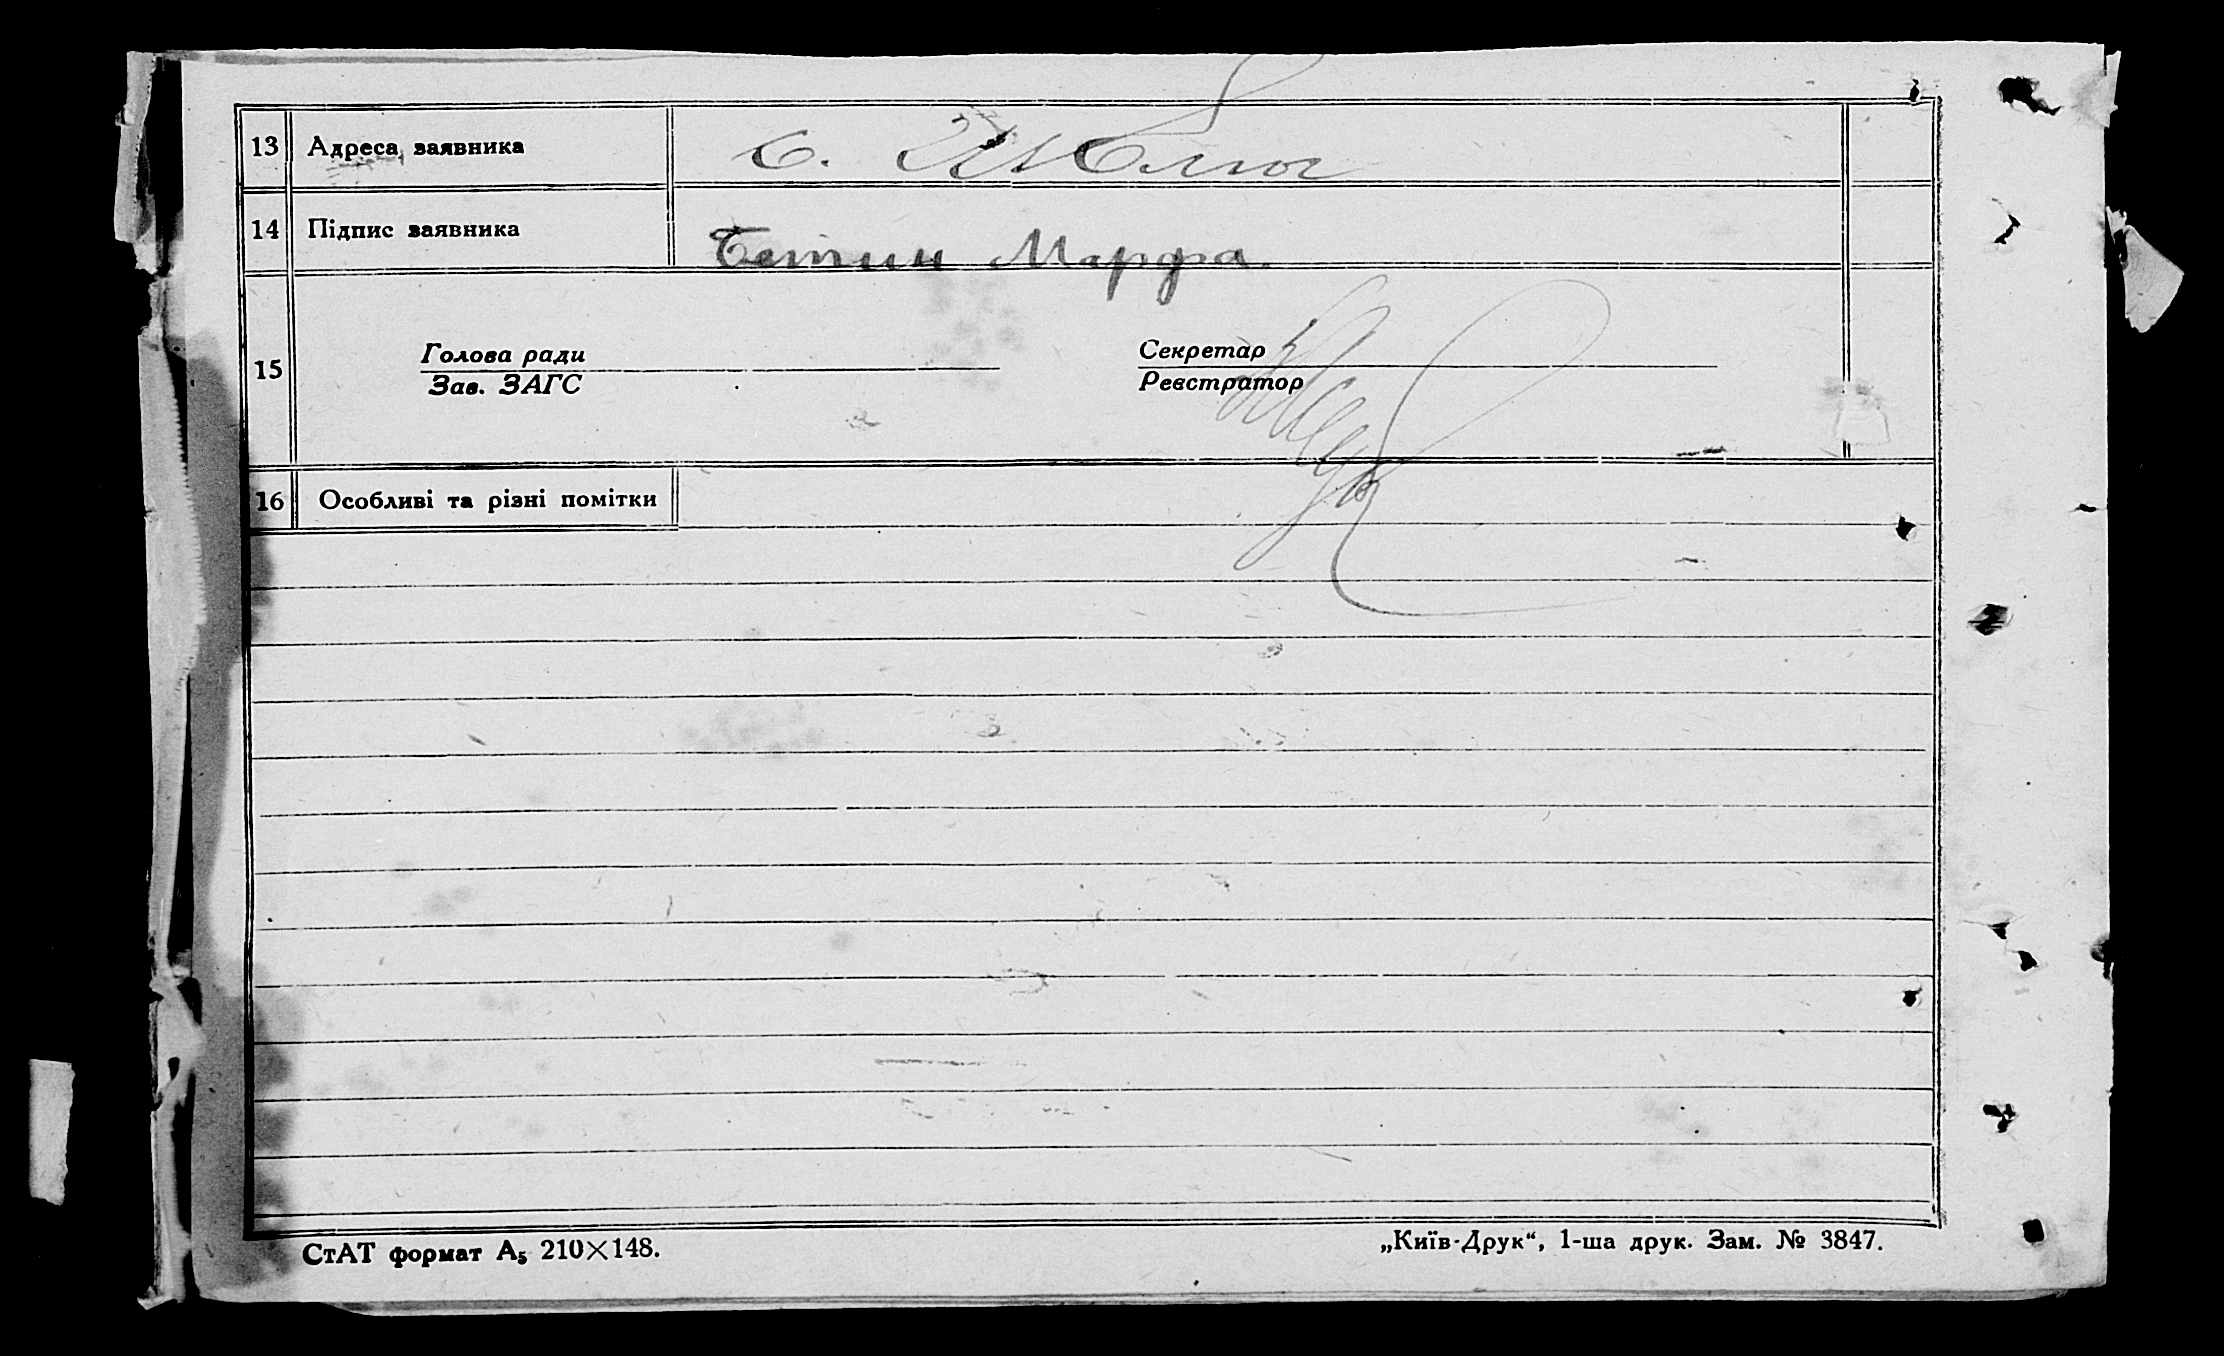 13 Адреса заявника с.
14 Підпис заявника Марфа.
15 Голова ради Секретар
Зав. ЗАГС Реєстратор
16 Особливі та різні помітки
СтАТ формат А₅ 210×148. „Київ-Друк“, 1-ша друк. Зам. № 3847.